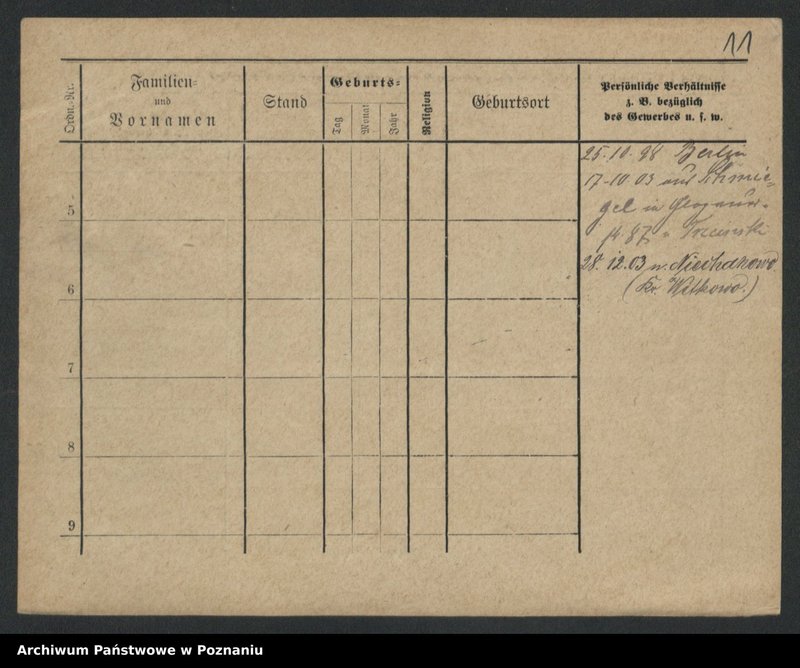 11
Ordn.-Nr.
Familien=
und
Vornamen
Stand
Geburts=
Tag
Monat
Jahr
Religion
Geburtsort
Persönliche Verhältnisse
z. B. bezüglich
des Gewerbes u. s. w.
25.10.98 Berlin
17-10 03 aus Schmie=
gel in
87
28.12.03 n. Niechanowo
(Kr. Witkowo.)
5
6
7
8
9
Archiwum Państwowe w Poznaniu